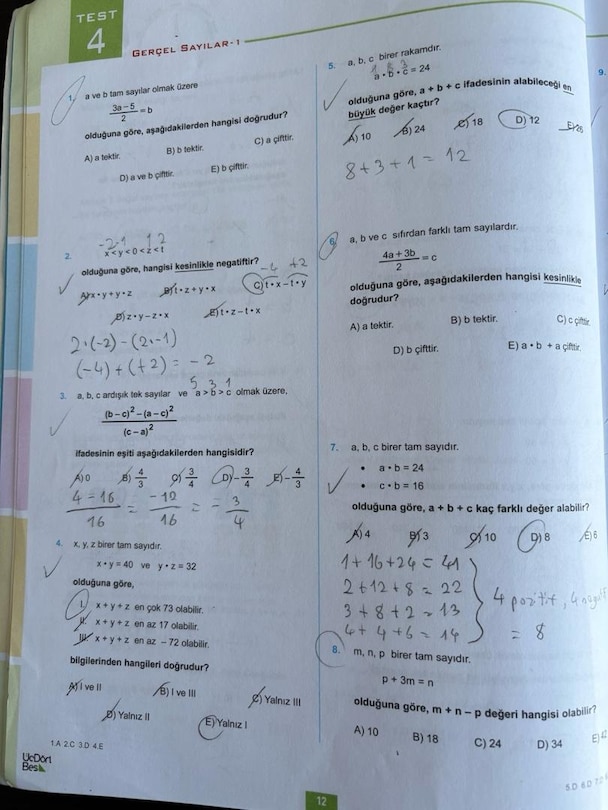 TEST
4
GERÇEL SAYILAR-1
1. a ve b tam sayılar olmak üzere
3a – 5 / 2 = b
olduğuna göre, aşağıdakilerden hangisi doğrudur?
A) a tektir. B) b tektir. C) a çifttir.
D) a ve b çifttir. E) b çifttir.
-2 -1 1 2
2. x < y < 0 < z < t
olduğuna göre, hangisi kesinlikle negatiftir?
-4 +2
A) x • y + y • z B) t • z + y • x C) t • x – t • y
D) z • y – z • x E) t • z – t • x
2·(-2) - (2·-1)
(-4) + (+2) = -2
5 3 1
3. a, b, c ardışık tek sayılar ve a > b > c olmak üzere,
(b – c)² – (a – c)² / (c – a)²
ifadesinin eşiti aşağıdakilerden hangisidir?
A) 0 B) 4/3 C) 3/4 D) – 3/4 E) – 4/3
4 - 16 / 16 = -12 / 16 = - 3 / 4
4. x, y, z birer tam sayıdır.
x • y = 40 ve y • z = 32
olduğuna göre,
I. x + y + z en çok 73 olabilir.
II. x + y + z en az 17 olabilir.
III. x + y + z en az – 72 olabilir.
bilgilerinden hangileri doğrudur?
A) I ve II B) I ve III C) Yalnız III
D) Yalnız II E) Yalnız I
1.A 2.C 3.D 4.E
ÜçDört
Beş
5. a, b, c birer rakamdır.
1 8 3
a • b • c = 24
olduğuna göre, a + b + c ifadesinin alabileceği en
büyük değer kaçtır?
A) 10 B) 24 C) 18 D) 12 E) 26
8 + 3 + 1 = 12
6. a, b ve c sıfırdan farklı tam sayılardır.
4a + 3b / 2 = c
olduğuna göre, aşağıdakilerden hangisi kesinlikle
doğrudur?
A) a tektir. B) b tektir. C) c çifttir.
D) b çifttir. E) a • b + a çifttir.
7. a, b, c birer tam sayıdır.
• a • b = 24
• c • b = 16
olduğuna göre, a + b + c kaç farklı değer alabilir?
A) 4 B) 3 C) 10 D) 8 E) 6
1 + 16 + 24 = 41
2 + 12 + 8 = 22
3 + 8 + 2 = 13
4 + 4 + 6 = 14
4 pozitif, 4
= 8
8. m, n, p birer tam sayıdır.
p + 3m = n
olduğuna göre, m + n – p değeri hangisi olabilir?
A) 10 B) 18 C) 24 D) 34 E) 42
5.D 6.D 7.D
12
9.